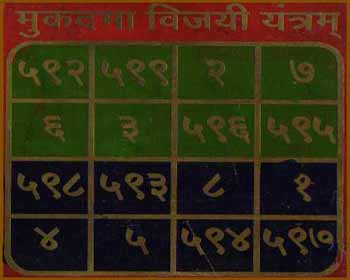 मुकदमा विजयी यंत्रम्
५९२ ५९९ २ ७
६ ३ ५९६ ५९५
५९८ ५९३ ८ १
४ ५ ५९४ ५९७